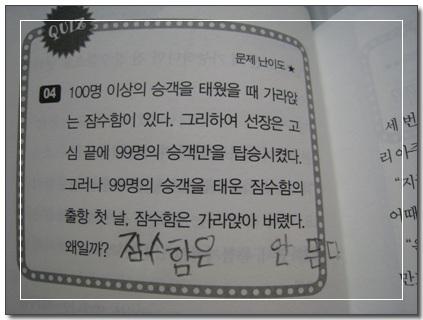 QUIZ
문제 난이도 ★
04 100명 이상의 승객을 태웠을 때 가라앉
는 잠수함이 있다. 그리하여 선장은 고
심 끝에 99명의 승객만을 탑승시켰다.
그러나 99명의 승객을 태운 잠수함의
출항 첫 날, 잠수함은 가라앉아 버렸다.
왜일까? 잠수함은 안 뜬다
세 번
리 아쿠
"지
어때
만